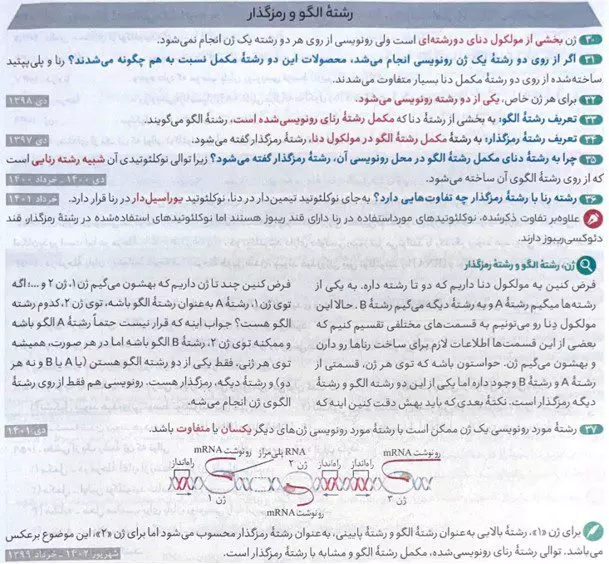 رشتهٔ الگو و رمزگذار
۳۰ ژن بخشی از مولکول دنای دورشته‌ای است ولی رونویسی از روی هر دو رشته یک ژن انجام نمی‌شود.
۳۱ اگر از روی دو رشتهٔ یک ژن رونویسی انجام می‌شد، محصولات این دو رشتهٔ مکمل نسبت به هم چگونه می‌شدند؟ رنا و پلی‌پپتید
ساخته‌شده از روی دو رشتهٔ مکمل دنا بسیار متفاوت می‌شدند.
۳۲ برای هر ژن خاص، یکی از دو رشته رونویسی می‌شود. دی ۱۳۹۸
۳۳ تعریف رشتهٔ الگو: به بخشی از رشتهٔ دنا که مکمل رشتهٔ رنای رونویسی شده است، رشتهٔ الگو می‌گویند.
۳۴ تعریف رشتهٔ رمزگذار: به رشتهٔ مکمل رشتهٔ الگو در مولکول دنا، رشتهٔ رمزگذار گفته می‌شود. دی ۱۳۹۷
۳۵ چرا به رشتهٔ دنای مکمل رشتهٔ الگو در محل رونویسی آن، رشتهٔ رمزگذار گفته می‌شود؟ زیرا توالی نوکلئوتیدی آن شبیه رشته رنایی است
که از روی رشتهٔ الگوی آن ساخته می‌شود. دی ۱۴۰۰ - خرداد ۱۴۰۰
۳۶ رشته رنا با رشتهٔ رمزگذار چه تفاوت‌هایی دارد؟ به‌جای نوکلئوتید تیمین‌دار در دنا، نوکلئوتید یوراسیل‌دار در رنا قرار دارد. خرداد ۱۴۰۱
علاوه‌بر تفاوت ذکرشده، نوکلئوتیدهای مورداستفاده در رنا دارای قند ریبوز هستند اما نوکلئوتیدهای استفاده‌شده در رشتهٔ رمزگذار قند
دئوکسی‌ریبوز دارند.
ژن، رشتهٔ الگو و رشتهٔ رمزگذار
فرض کنین یه مولکول دنا داریم که دو تا رشته داره. به یکی از
رشته‌ها میگیم رشتهٔ A و به رشتهٔ دیگه می‌گیم رشتهٔ B. حالا این
مولکول دنا رو می‌تونیم به قسمت‌های مختلفی تقسیم کنیم که
بعضی از این قسمت‌ها اطلاعات لازم برای ساخت رناها رو دارن
و بهشون می‌گیم ژن. حواستون باشه که توی هر ژن، قسمتی از
رشتهٔ A و رشتهٔ B وجود داره اما یکی از این دو رشته الگو و رشتهٔ
دیگه رمزگذار است. نکتهٔ بعدی که باید بهش دقت کنین اینه که
فرض کنین چند تا ژن داریم که بهشون می‌گیم ژن ۱، ژن ۲ و ...؛ اگه
توی ژن ۱، رشتهٔ A به‌عنوان رشتهٔ الگو باشه، توی ژن ۲، کدوم رشته
الگو هست؟ جواب اینه که قرار نیست حتماً رشتهٔ A الگو باشه
و ممکنه توی ژن ۲، رشتهٔ B الگو باشه اما در هر صورت، همیشه
توی هر ژنی، فقط یکی از دو رشته الگو هستن (یا A یا B و نه هر
دو) و رشتهٔ دیگه، رمزگذار هست. رونویسی هم فقط از روی رشتهٔ
الگوی ژن انجام می‌شه.
۳۷ رشتهٔ مورد رونویسی یک ژن ممکن است با رشتهٔ مورد رونویسی ژن‌های دیگر یکسان یا متفاوت باشد. دی ۱۴۰۱
رونوشت mRNA
RNA پلی‌مراز
رونوشت mRNA
راه‌انداز
ژن ۲
راه‌انداز
راه‌انداز
ژن ۱
ژن ۳
رونوشت mRNA
برای ژن «۱»، رشتهٔ بالایی به‌عنوان رشتهٔ الگو و رشتهٔ پایینی، به‌عنوان رشتهٔ رمزگذار محسوب می‌شود اما برای ژن «۲»، این موضوع برعکس
می‌باشد. توالی رشتهٔ رنای رونویسی‌شده، مکمل رشتهٔ الگو و مشابه با رشتهٔ رمزگذار است. شهریور ۱۴۰۲ - خرداد ۱۳۹۹